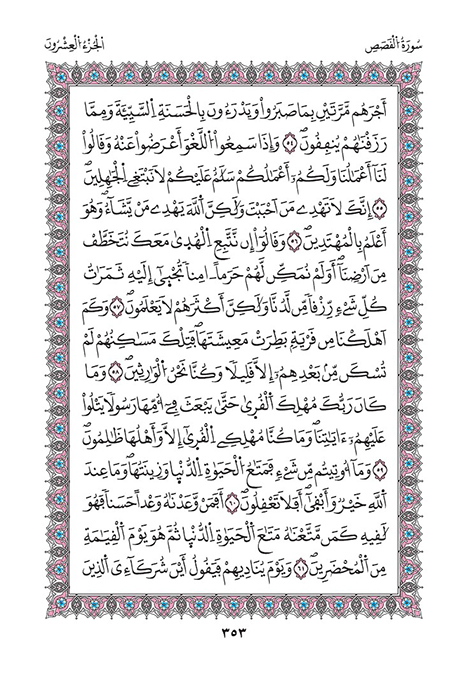 سُورَةُ الْقَصَصِ
الْجُزْءُ الْعِشْرُونَ
أَجْرَهُم مَّرَّتَيْنِ بِمَا صَبَرُواْ وَيَدْرَءُونَ بِالْحَسَنَةِ اِلسَّيِّئَةَ وَمِمَّا
رَزَقْنَٰهُمْ يُنفِقُونَۖ ٥٤ وَإِذَا سَمِعُواْ اُللَّغْوَ أَعْرَضُواْ عَنْهُ وَقَالُواْ
لَنَا أَعْمَٰلُنَا وَلَكُمُۥٓ أَعْمَٰلُكُمْ سَلَٰمٌ عَلَيْكُمْ لَا نَبْتَغِے اِلْجَٰهِلِينَۖ
٥٥ إِنَّكَ لَا تَهْدِے مَنَ اَحْبَبْتَ وَلَٰكِنَّ اَللَّهَ يَهْدِے مَنْ يَّشَآءُۖ وَهُوَ
أَعْلَمُ بِالْمُهْتَدِينَۖ ٥٦ وَقَالُوٓاْ إِن نَّتَّبِعِ اِلْهُدَىٰ مَعَكَ نُتَخَطَّفْ
مِنَ اَرْضِنَآۖ أَوَلَمْ نُمَكِّن لَّهُمْ حَرَماً ـامِناً تُجْبَىٰٓ إِلَيْهِ ثَمَرَٰتُ
كُلِّ شَےْءٍ رِّزْقاً مِّن لَّدُنَّا وَلَٰكِنَّ أَكْثَرَهُمْ لَا يَعْلَمُونَۖ ٥٧ وَكَمَ
اَهْلَكْنَا مِن قَرْيَةِۢ بَطِرَتْ مَعِيشَتَهَاۖ فَتِلْكَ مَسَٰكِنُهُمْ لَمْ
تُسْكَن مِّنۢ بَعْدِهِمُۥٓ إِلَّا قَلِيلاًۖ وَكُنَّا نَحْنُ اُلْوَٰرِثِينَۖ ٥٨ وَمَا
كَانَ رَبُّكَ مُهْلِكَ اَلْقُرَىٰ حَتَّىٰ يَبْعَثَ فِےٓ أُمِّهَا رَسُولاً يَتْلُواْ
عَلَيْهِمُۥٓ ءَايَٰتِنَاۖ وَمَا كُنَّا مُهْلِكِے اِلْقُرَىٰٓ إِلَّا وَأَهْلُهَا ظَٰلِمُونَۖ
٥٩ وَمَآ أُوتِيتُم مِّن شَےْءٍ فَمَتَٰعُ اُلْحَيَوٰةِ اِلدُّنْيَا وَزِينَتُهَاۖ وَمَا عِندَ
اَللَّهِ خَيْرٌ وَأَبْقَىٰٓۖ أَفَلَا تَعْقِلُونَۖ ٦٠ أَفَمَنْ وَّعَدْنَٰهُ وَعْداً حَسَناً فَهُوَ
لَٰقِيهِ كَمَن مَّتَّعْنَٰهُ مَتَٰعَ اَلْحَيَوٰةِ اِلدُّنْيَا ثُمَّ هُوَ يَوْمَ اَلْقِيَٰمَةِ
مِنَ اَلْمُحْضَرِينَۖ ٦١ وَيَوْمَ يُنَادِيهِمْ فَيَقُولُ أَيْنَ شُرَكَآءِيَ اَلذِينَ
٣٥٣